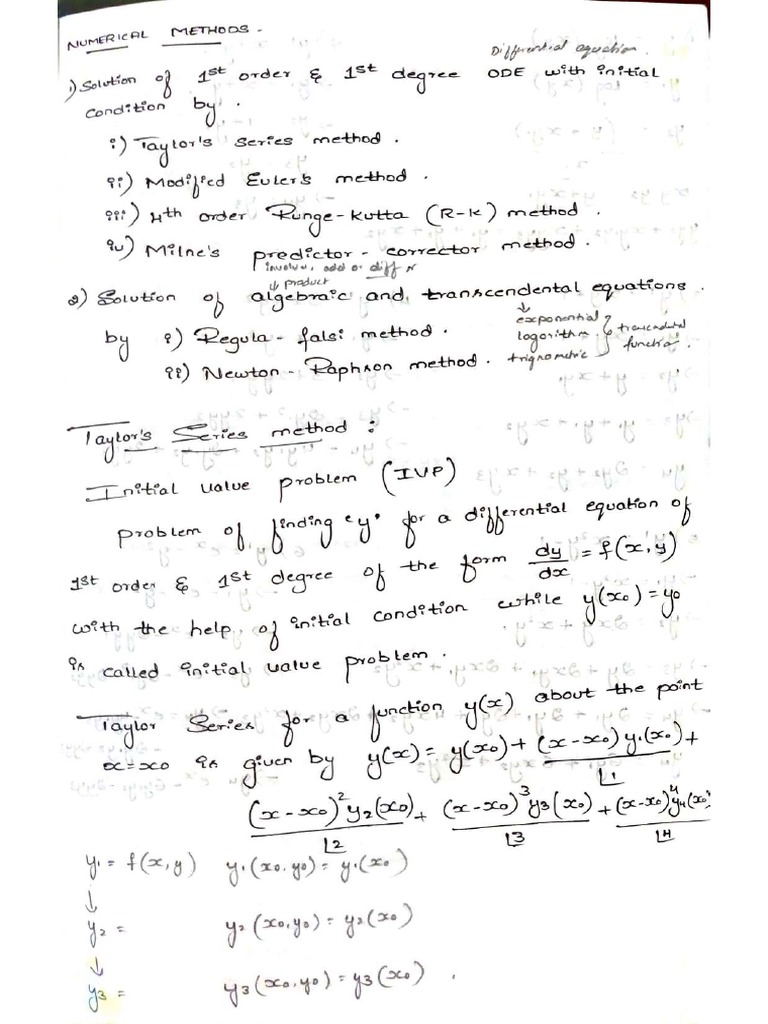 NUMERICAL METHODS -
Differential equation.
1) Solution of 1st order & 1st degree ODE with initial
condition by .
i) Taylor's series method .
ii) Modified Euler's method .
iii) 4th order Runge-Kutta (R-K) method .
iv) Milne's predictor - corrector method .
involve, add or diff
↓ product
2) Solution of algebraic and transcendental equations .
by i) Regula - falsi method .
↓
exponential
logorithm . } transcendental
trignometric function .
ii) Newton - Raphson method .
Taylor's Series method :
Initial value problem (IVP)
problem of finding 'y' for a differential equation of
1st order & 1st degree of the form dy/dx = f(x,y)
with the help of initial condition while y(x0) = y0
is called initial value problem .
Taylor Series for a function y(x) about the point
x=x0 is given by y(x) = y(x0) + (x-x0) y1(x0)/⌊1 +
(x-x0)²y2(x0)/⌊2 + (x-x0)³y3(x0)/⌊3 + (x-x0)⁴y4(x0)/⌊4
y1 = f(x,y) y1(x0,y0) = y1(x0)
↓
y2 = y2(x0,y0) = y2(x0)
↓
y3 = y3(x0,y0) = y3(x0) .